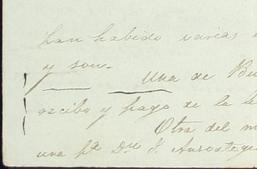 han habido varias
y son.
Una de Bu
recibo y pago de la le
Otra del m
una pª Dn J. Aurostegu